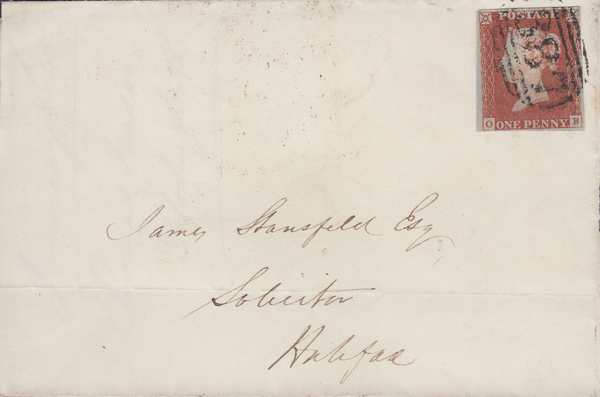 POSTAGE
O ONE PENNY B
James Stansfeld Esq
Solicitor
Halifax